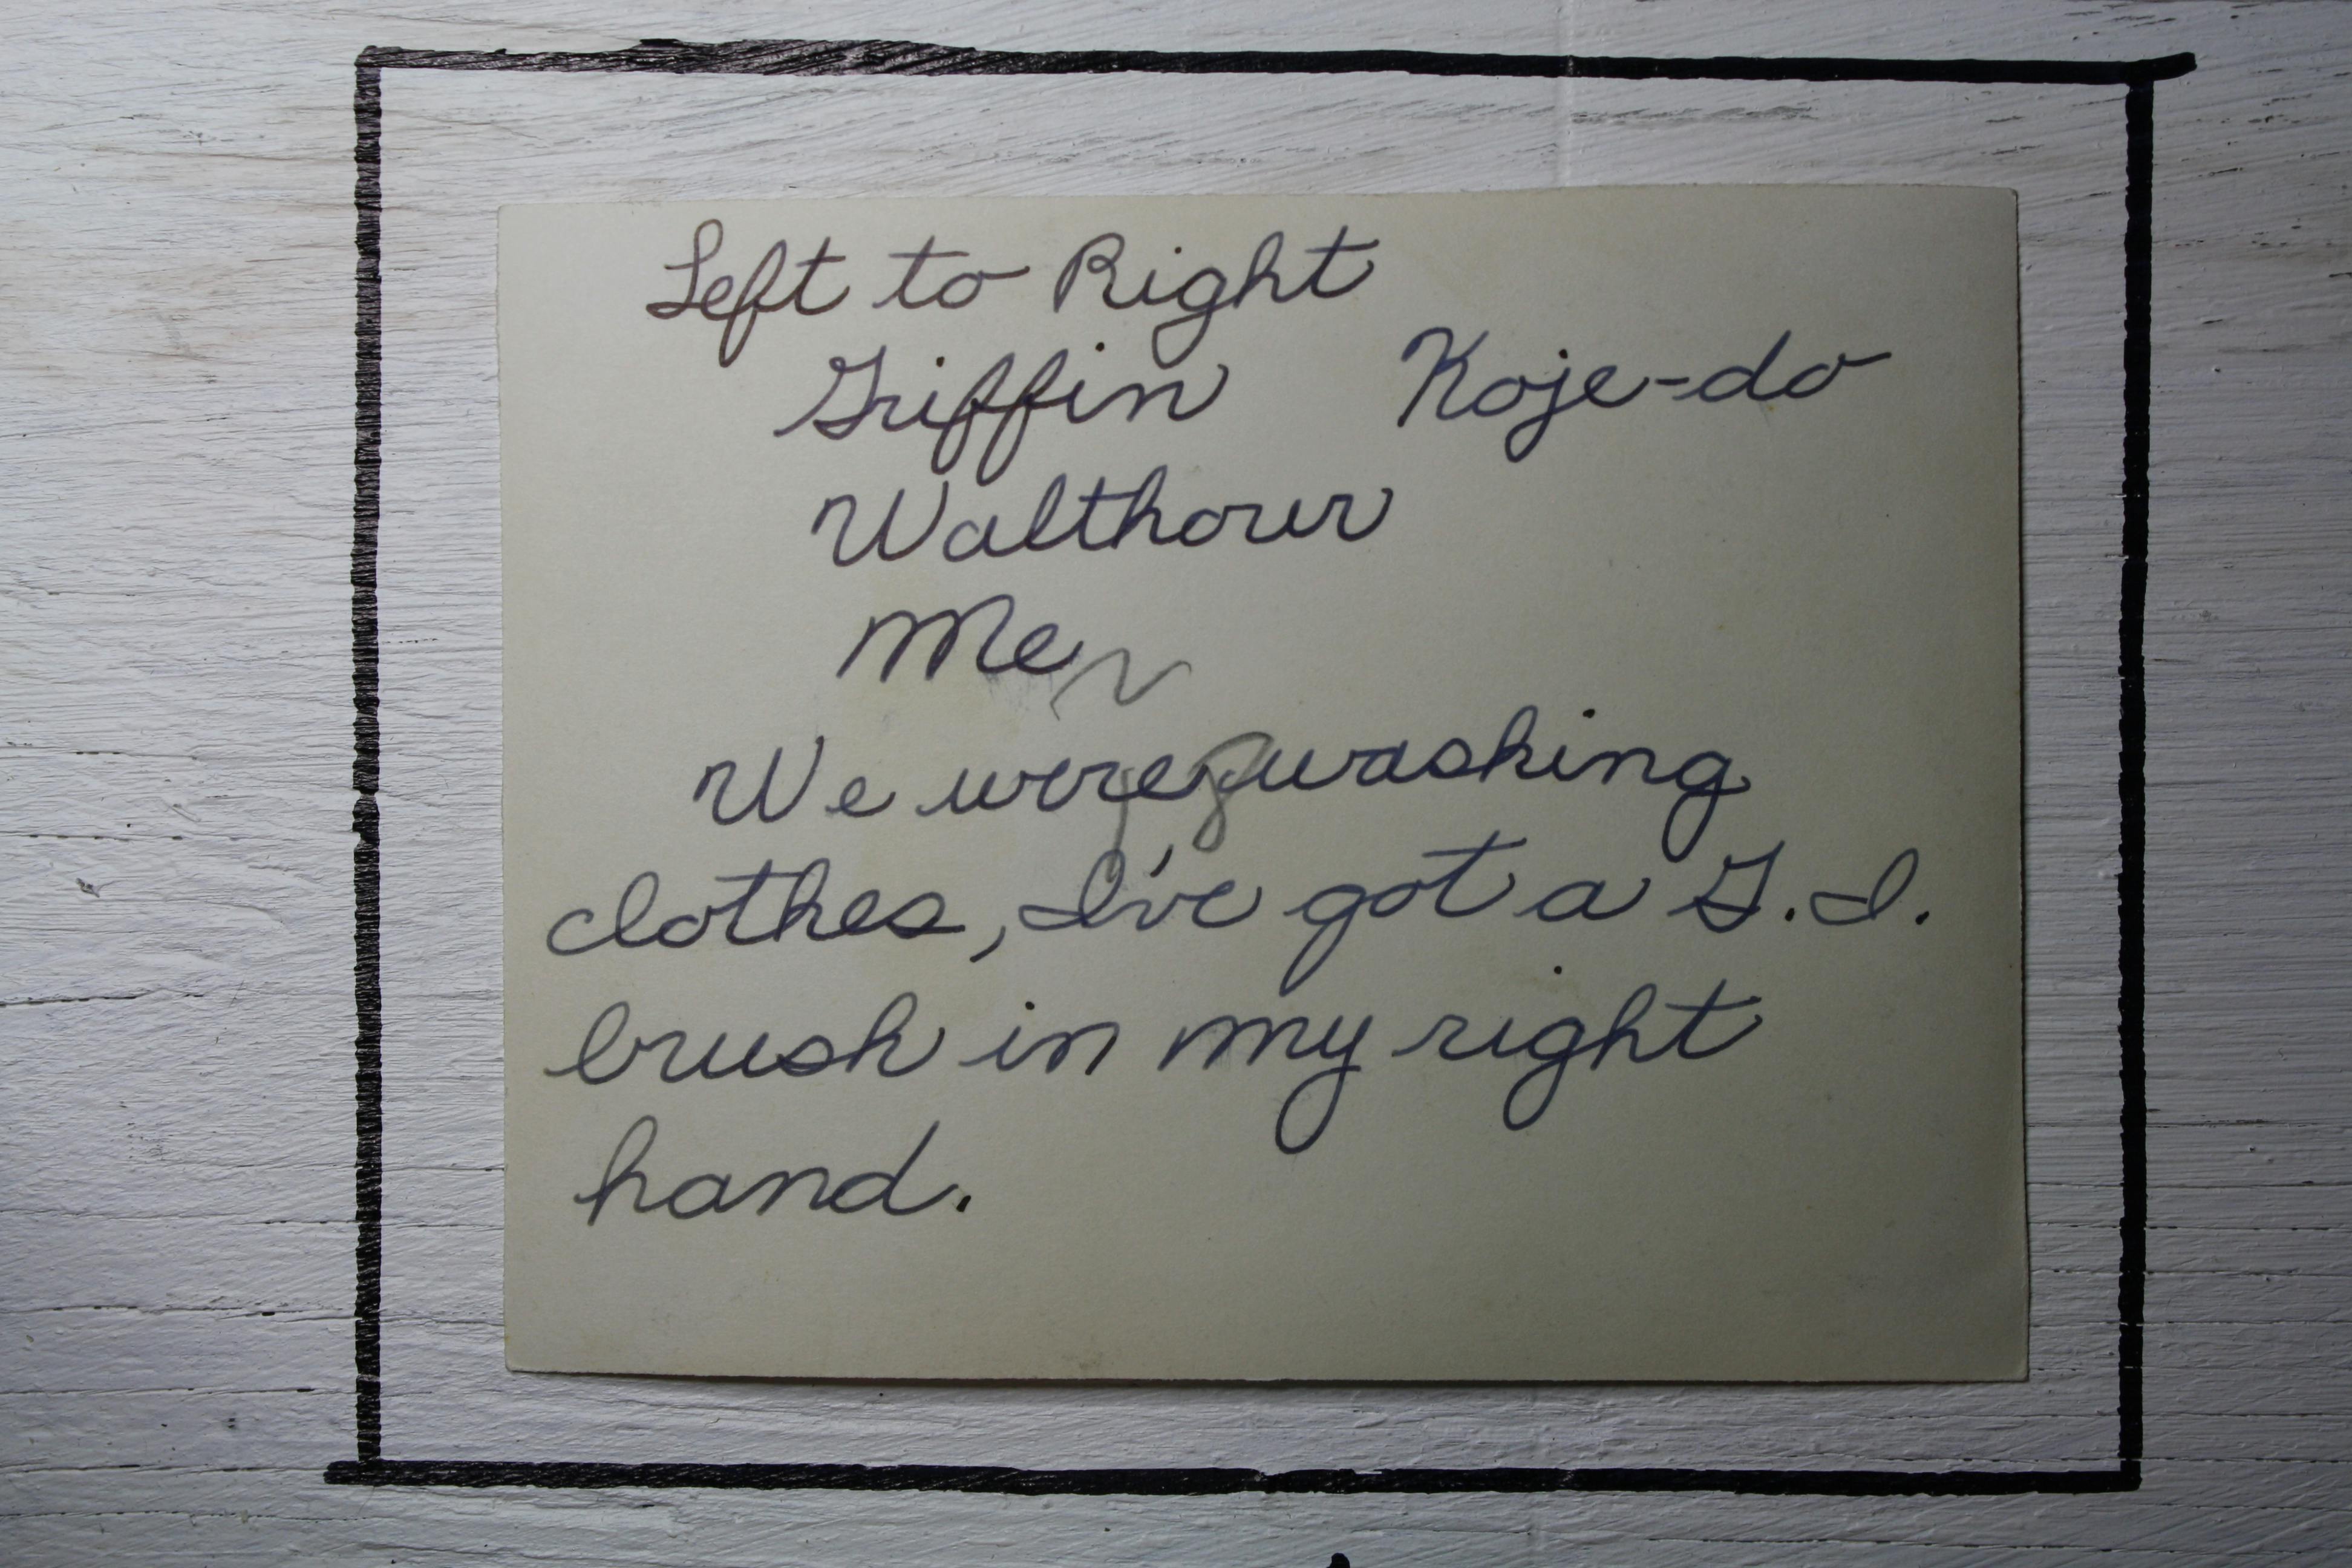 Left to Right
Griffin Koje-do
Walthour
Me
We were washing
clothes, I've got a G.I.
brush in my right
hand.